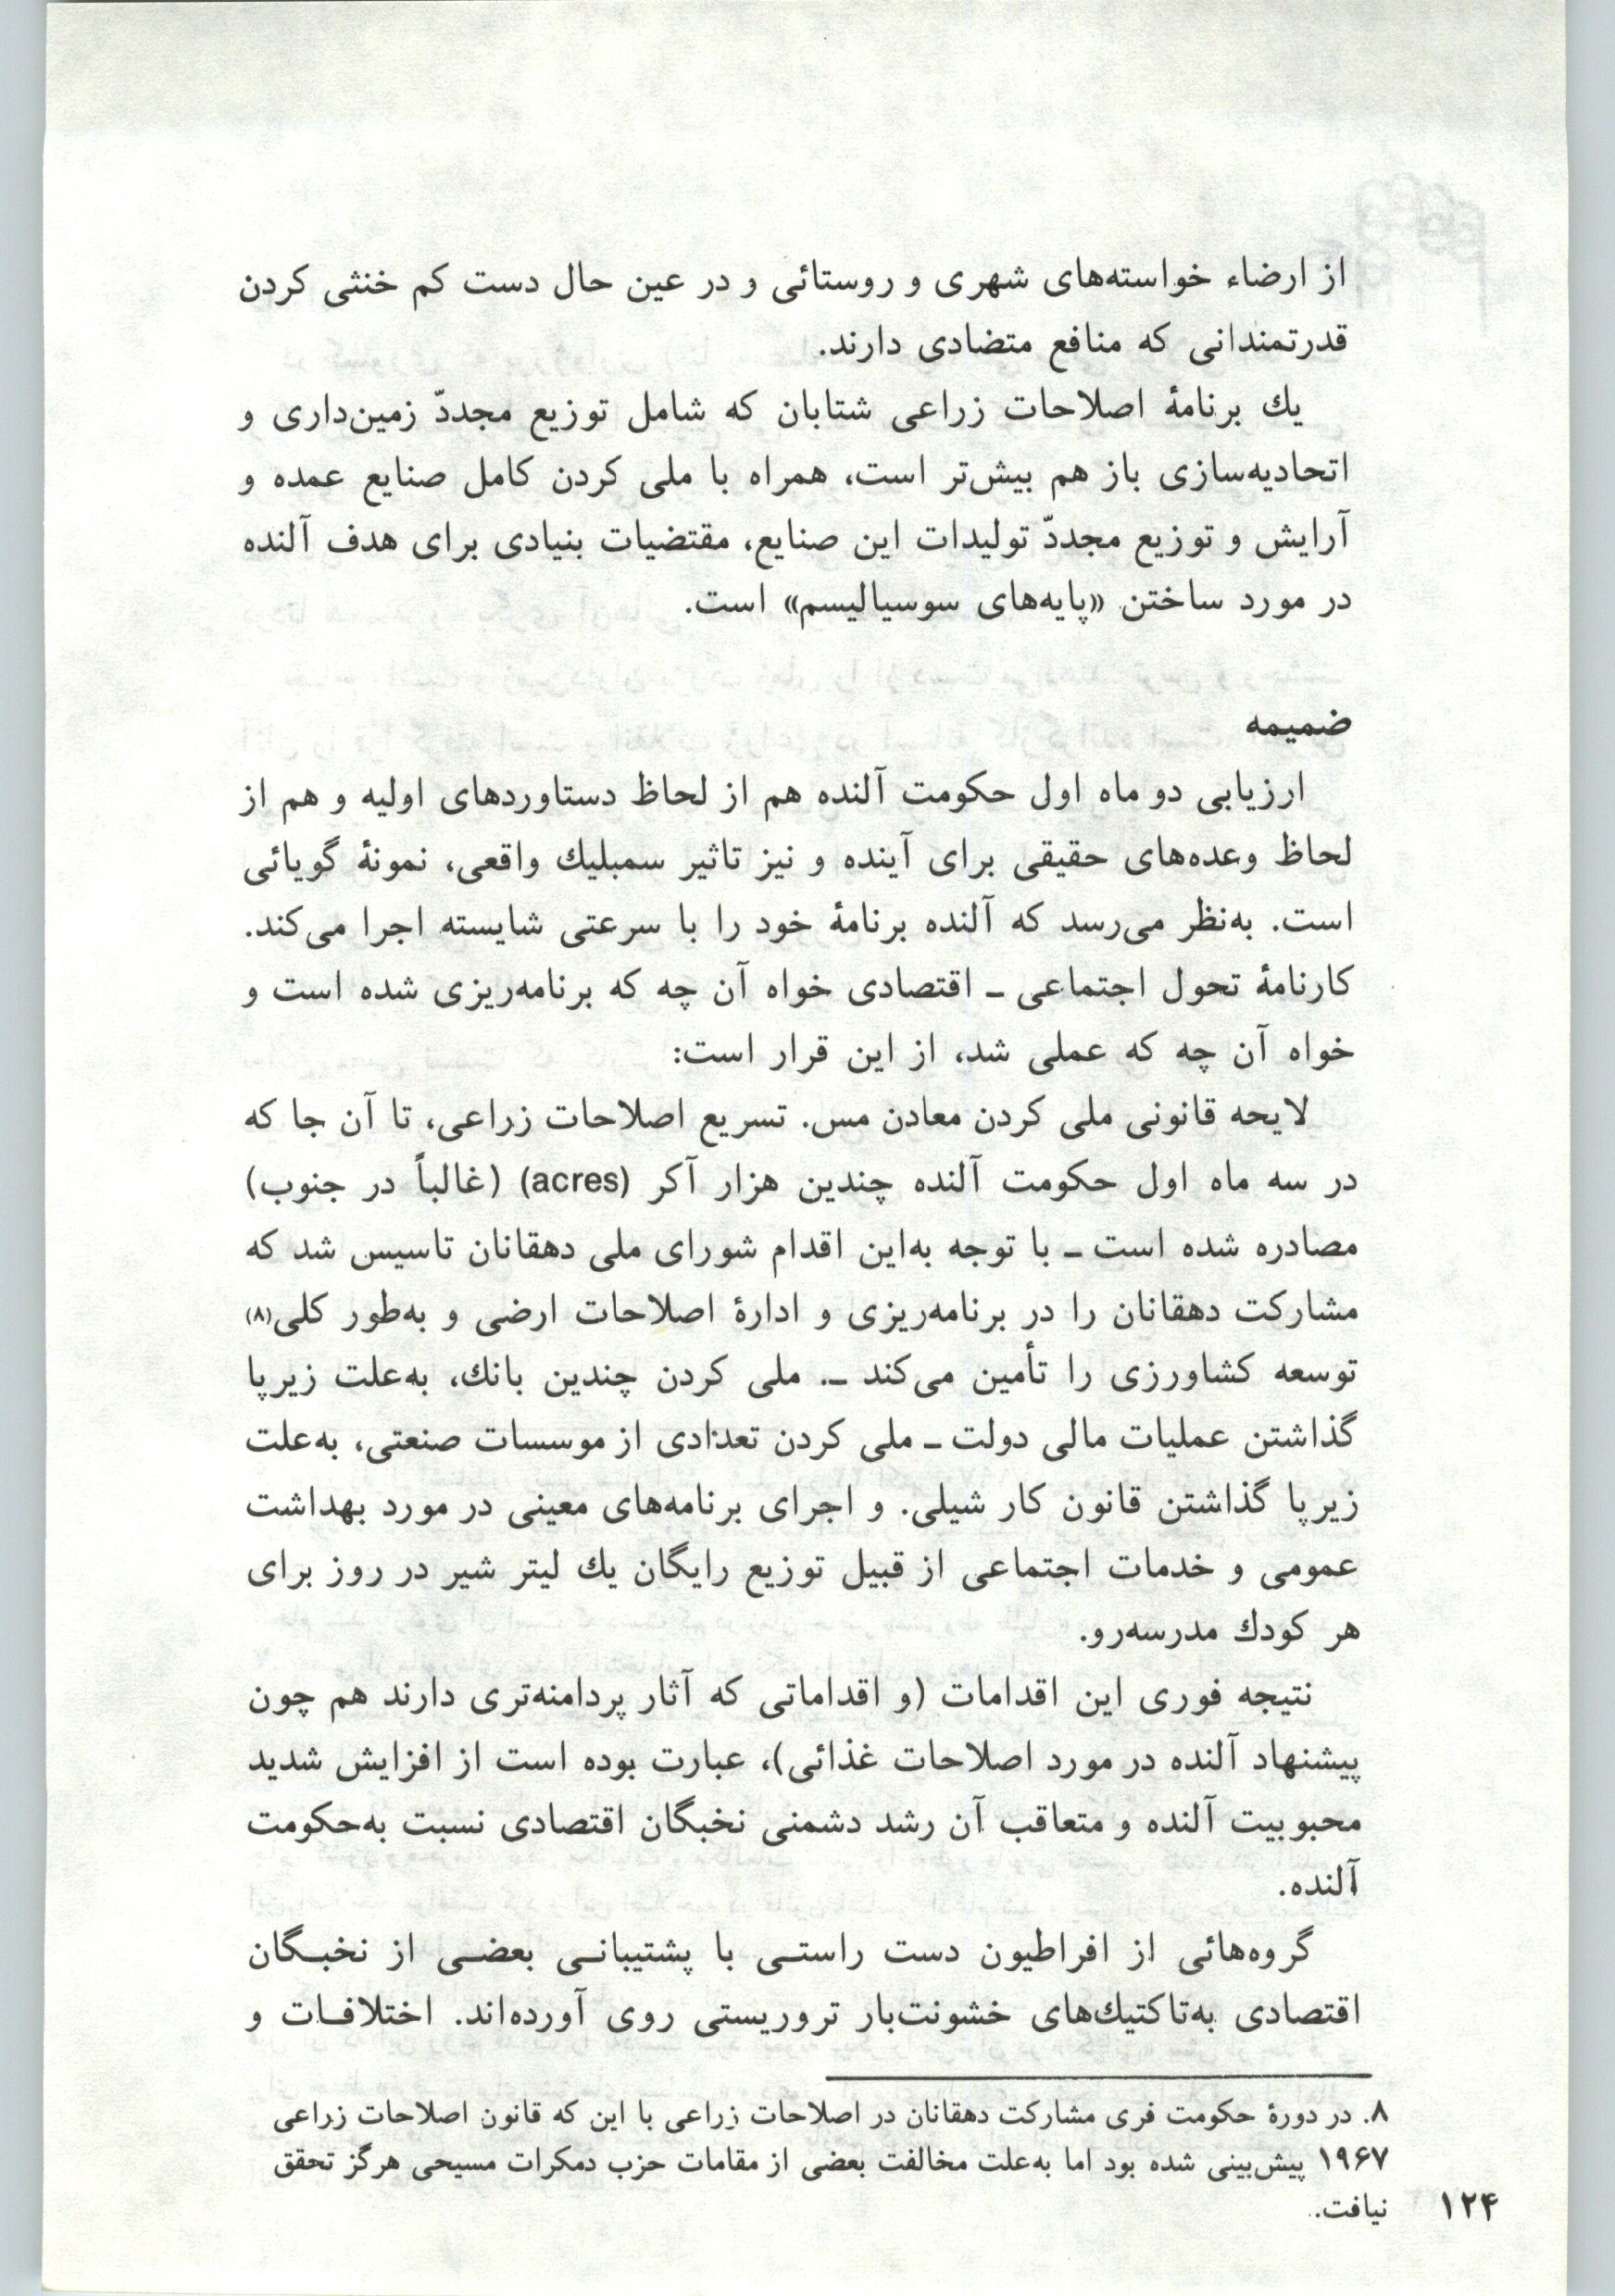 از ارضاء خواسته‌های شهری و روستائی و در عین حال دست کم خنثی کردن
قدرتمندانی که منافع متضادی دارند.
یك برنامهٔ اصلاحات زراعی شتابان که شامل توزیع مجددّ زمین‌داری و
اتحادیه‌سازی باز هم بیش‌تر است، همراه با ملی کردن کامل صنایع عمده و
آرایش و توزیع مجددّ تولیدات این صنایع، مقتضیات بنیادی برای هدف آلنده
در مورد ساختن «پایه‌های سوسیالیسم» است.
ضمیمه
ارزیابی دو ماه اول حکومت آلنده هم از لحاظ دستاوردهای اولیه و هم از
لحاظ وعده‌های حقیقی برای آینده و نیز تاثیر سمبلیك واقعی، نمونهٔ گویائی
است. به‌نظر می‌رسد که آلنده برنامهٔ خود را با سرعتی شایسته اجرا می‌کند.
کارنامهٔ تحول اجتماعی ـ اقتصادی خواه آن چه که برنامه‌ریزی شده است و
خواه آن چه که عملی شد، از این قرار است:
لایحه قانونی ملی کردن معادن مس. تسریع اصلاحات زراعی، تا آن جا که
در سه ماه اول حکومت آلنده چندین هزار آکر (acres) (غالباً در جنوب)
مصادره شده است ـ با توجه به‌این اقدام شورای ملی دهقانان تاسیس شد که
مشارکت دهقانان را در برنامه‌ریزی و ادارهٔ اصلاحات ارضی و به‌طور کلی(۸)
توسعه کشاورزی را تأمین می‌کند ـ. ملی کردن چندین بانك، به‌علت زیرپا
گذاشتن عملیات مالی دولت ـ ملی کردن تعدادی از موسسات صنعتی، به‌علت
زیرپا گذاشتن قانون کار شیلی. و اجرای برنامه‌های معینی در مورد بهداشت
عمومی و خدمات اجتماعی از قبیل توزیع رایگان یك لیتر شیر در روز برای
هر کودك مدرسه‌رو.
نتیجه فوری این اقدامات (و اقداماتی که آثار پردامنه‌تری دارند هم چون
پیشنهاد آلنده در مورد اصلاحات غذائی)، عبارت بوده است از افزایش شدید
محبوبیت آلنده و متعاقب آن رشد دشمنی نخبگان اقتصادی نسبت به‌حکومت
آلنده.
گروه‌هائی از افراطیون دست راستـی با پشتیبانـی بعضـی از نخبـگان
اقتصادی به‌تاکتیك‌های خشونت‌بار تروریستی روی آورده‌اند. اختلافـات و
۸. در دورهٔ حکومت فری مشارکت دهقانان در اصلاحات زراعی با این که قانون اصلاحات زراعی
۱۹۶۷ پیش‌بینی شده بود اما به‌علت مخالفت بعضی از مقامات حزب دمکرات مسیحی هرگز تحقق
نیافت.
۱۲۴